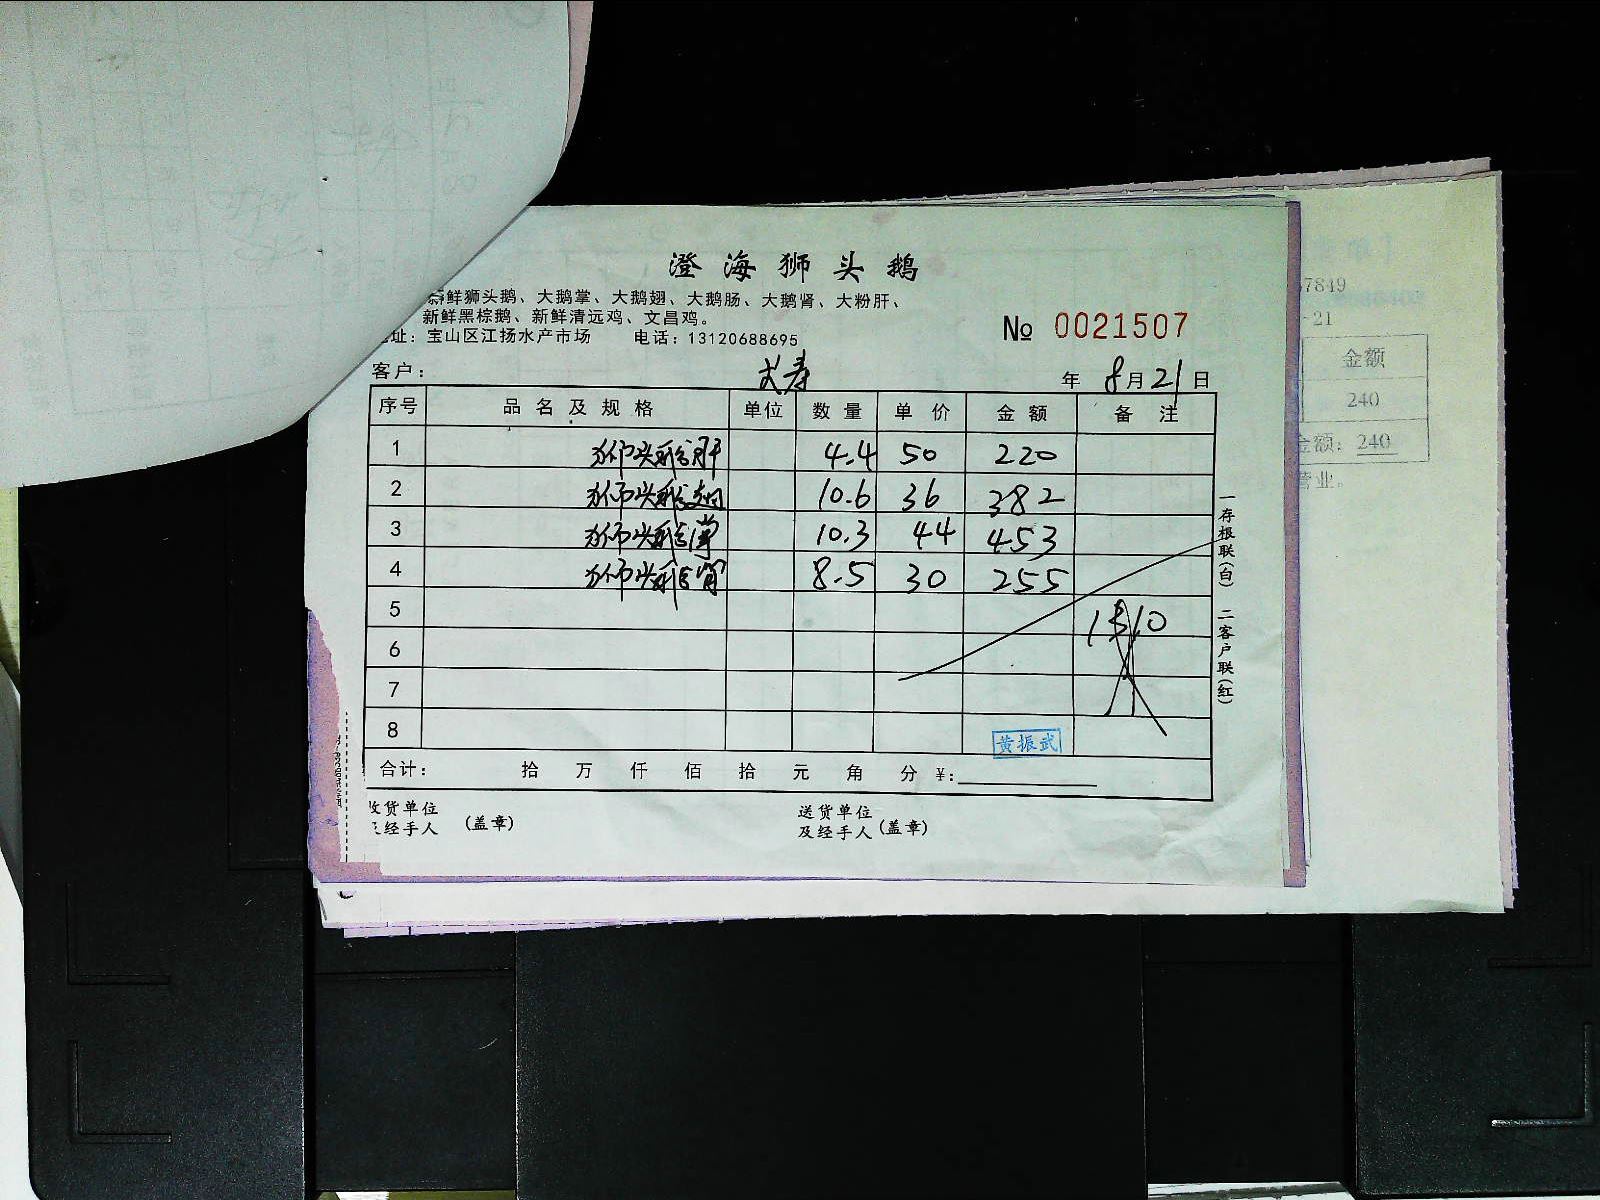 澄海狮头鹅
新鲜狮头鹅、大鹅掌、大鹅翅、大鹅肠、大鹅肾、大粉肝、
新鲜黑棕鹅、新鲜清远鸡、文昌鸡。
址：宝山区江扬水产市场 电话：13120688695
№ 0021507
客户：
年 8月21日
序号 品名及规格 单位 数量 单价 金额 备注
1 狮头鹅肝 4.4 50 220
2 狮头鹅翅 10.6 36 382
3 狮头鹅掌 10.3 44 453
4 狮头鹅肾 8.5 30 255
5 1310
6
7
8 黄振武
合计： 拾 万 仟 佰 拾 元 角 分 ¥:
收货单位
及经手人 (盖章)
送货单位
及经手人 (盖章)
一存根联(白) 二客户联(红)
7849
-21
金额
240
金额：240
营业。